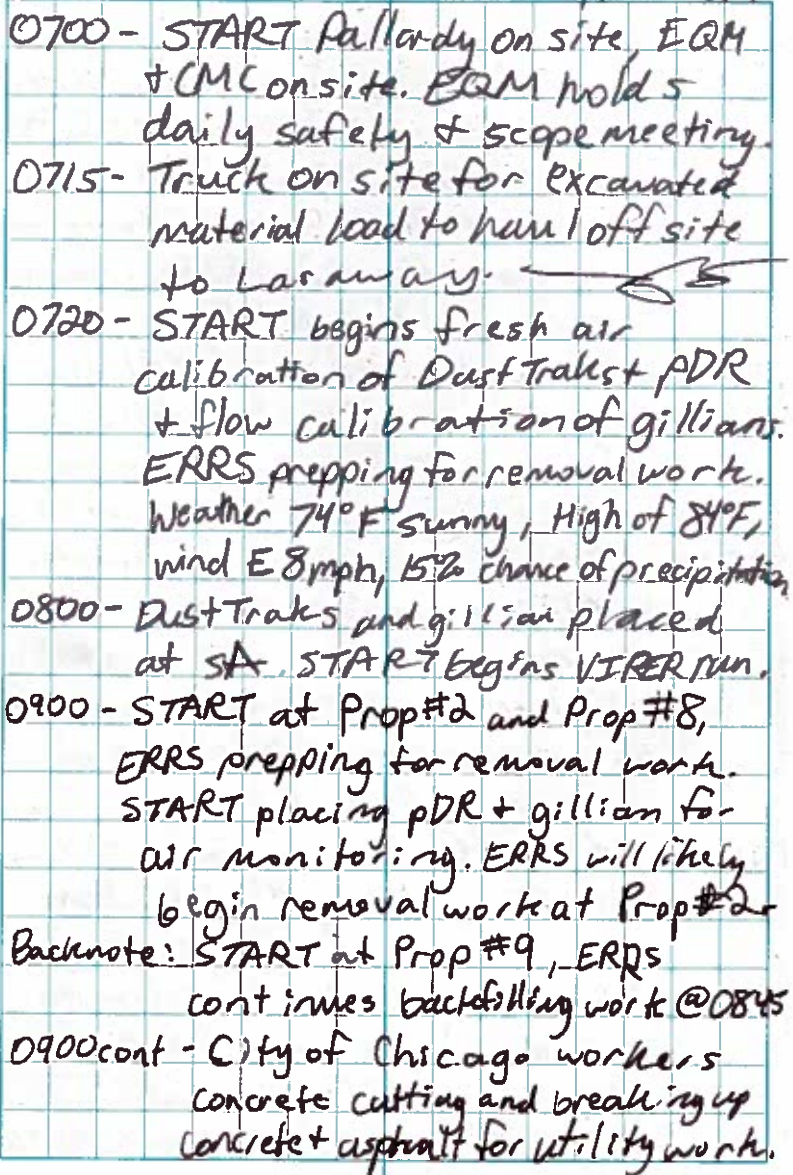 0700 - START Pallardy on site, EQM
+ CMC on site. EQM holds
daily safety + scope meeting.
0715 - Truck on site for excavated
material load to haul off site
to Laraway.
0720 - START begins fresh air
calibration of DustTraks + pDR
+ flow calibration of gillians.
ERRS prepping for removal work.
Weather 74°F sunny, High of 84°F,
wind E 8mph, 15% chance of precipitation
0800 - DustTraks and gillian placed
at SA. START begins VIPER run.
0900 - START at Prop #2 and Prop #8,
ERRS prepping for removal work.
START placing pDR + gillian for
air monitoring. ERRS will likely
begin removal work at Prop #2.
Backnote: START at Prop #9, ERRS
continues backfilling work @0845
0900cont - City of Chicago workers
concrete cutting and breaking up
concrete + asphalt for utility work.